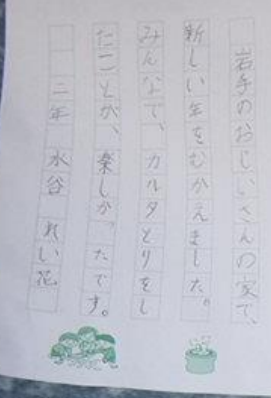 岩手のおじいさんの家で、
新しい年をむかえました。
みんなで、カルタとりをし
たことが、楽しかったです。
二年 水谷 れい花